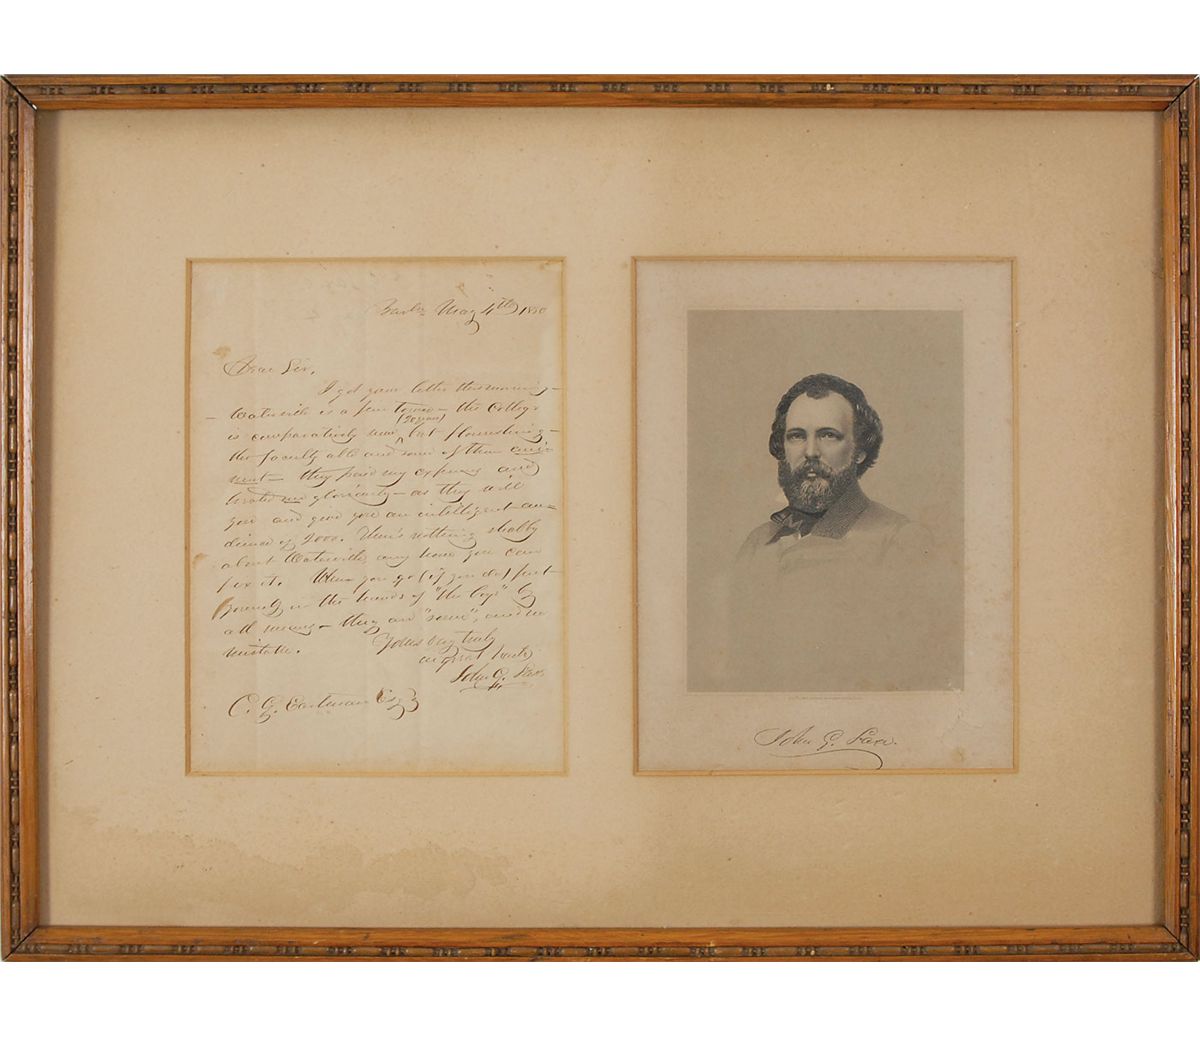 May 4th 1850
Dear Sir,
I got your letter this morning—
— Waterville is a fine town — the College
(30 years)
is comparatively new, but flourishing —
the faculty able and some of them emi-
nent — they paid my expenses and
treated me gloriously — as they will
you and give you an intelligent au-
dience of 2000. There's nothing shabby
about Waterville, any how you can
fix it. When you go (if you do) put
yourself in the hands of "the boys" by
all means — they are "some", and no
mistake. Yours very truly
in great haste
John G. Saxe
C. G. Eastman Esq
John G. Saxe.